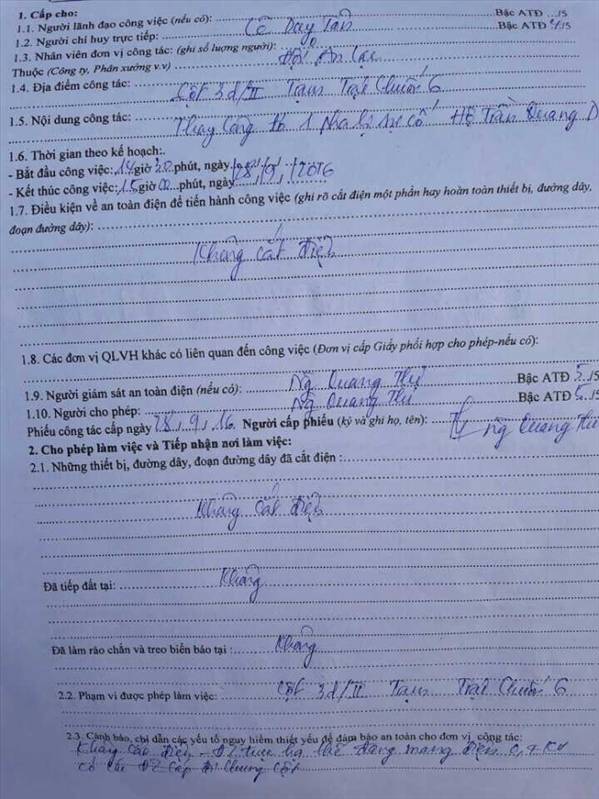 1. Cấp cho:
1.1. Người lãnh đạo công việc (nếu có): Bậc ATĐ ..../5
1.2. Người chỉ huy trực tiếp: Lê Duy Tân Bậc ATĐ 5/5
1.3. Nhân viên đơn vị công tác: (ghi số lượng người):
Thuộc (Công ty, Phân xưởng v.v)
1.4. Địa điểm công tác: Cột 3d/II Trạm Trại Chuối 6
1.5. Nội dung công tác: Thay công tơ 1 pha bị sự cố Hộ Trần Quang D
1.6. Thời gian theo kế hoạch:
- Bắt đầu công việc: 14 giờ 30 phút, ngày 28/9/2016
- Kết thúc công việc: 15 giờ 00 phút, ngày
1.7. Điều kiện về an toàn điện để tiến hành công việc (ghi rõ cắt điện một phần hay hoàn toàn thiết bị, đường dây,
đoạn đường dây):
Không cắt điện
1.8. Các đơn vị QLVH khác có liên quan đến công việc (Đơn vị cấp Giấy phối hợp cho phép-nếu có):
1.9. Người giám sát an toàn điện (nếu có): Ng Quang Thư Bậc ATĐ 5/5
1.10. Người cho phép: Ng Quang Thư Bậc ATĐ 5/5
Phiếu công tác cấp ngày 28, 9, 16 Người cấp phiếu (ký và ghi họ, tên): Ng Quang Thư
2. Cho phép làm việc và Tiếp nhận nơi làm việc:
2.1. Những thiết bị, đường dây, đoạn đường dây đã cắt điện :
Không cắt điện
Đã tiếp đất tại: Không
Đã làm rào chắn và treo biển báo tại : Không
2.2. Phạm vi được phép làm việc: Cột 3d/II Trạm Trại Chuối 6
2.3. Cảnh báo, chỉ dẫn các yếu tố nguy hiểm thiết yếu để đảm bảo an toàn cho đơn vị công tác:
Không cắt điện - ĐZ trục hạ thế đang mang điện 0,4 KV
Có các ĐZ cáp đi chung cột